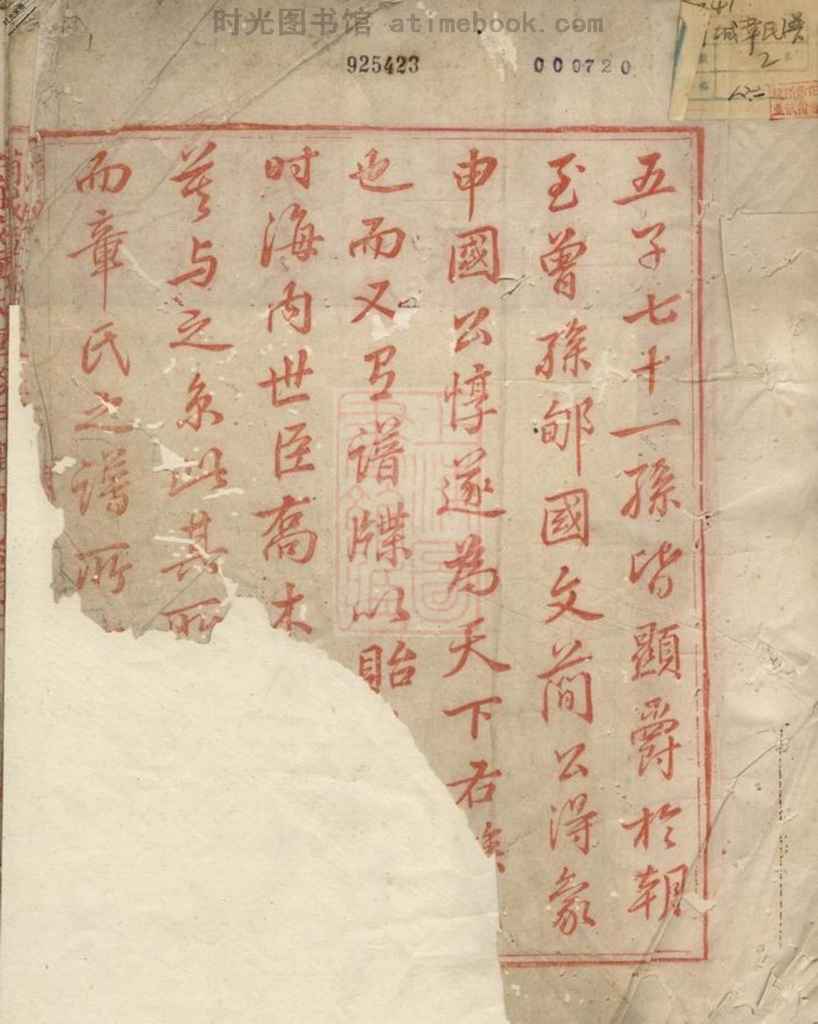 时光图书馆 atimebook.com
925423
000720
2
五子七十一孫皆顯爵於朝
至曾孫郇國文簡公得象
申國公惇遂為天下右族
也而又有譜牒以貽
时海内世臣喬木
莫与之京此其所
而章氏之譜所